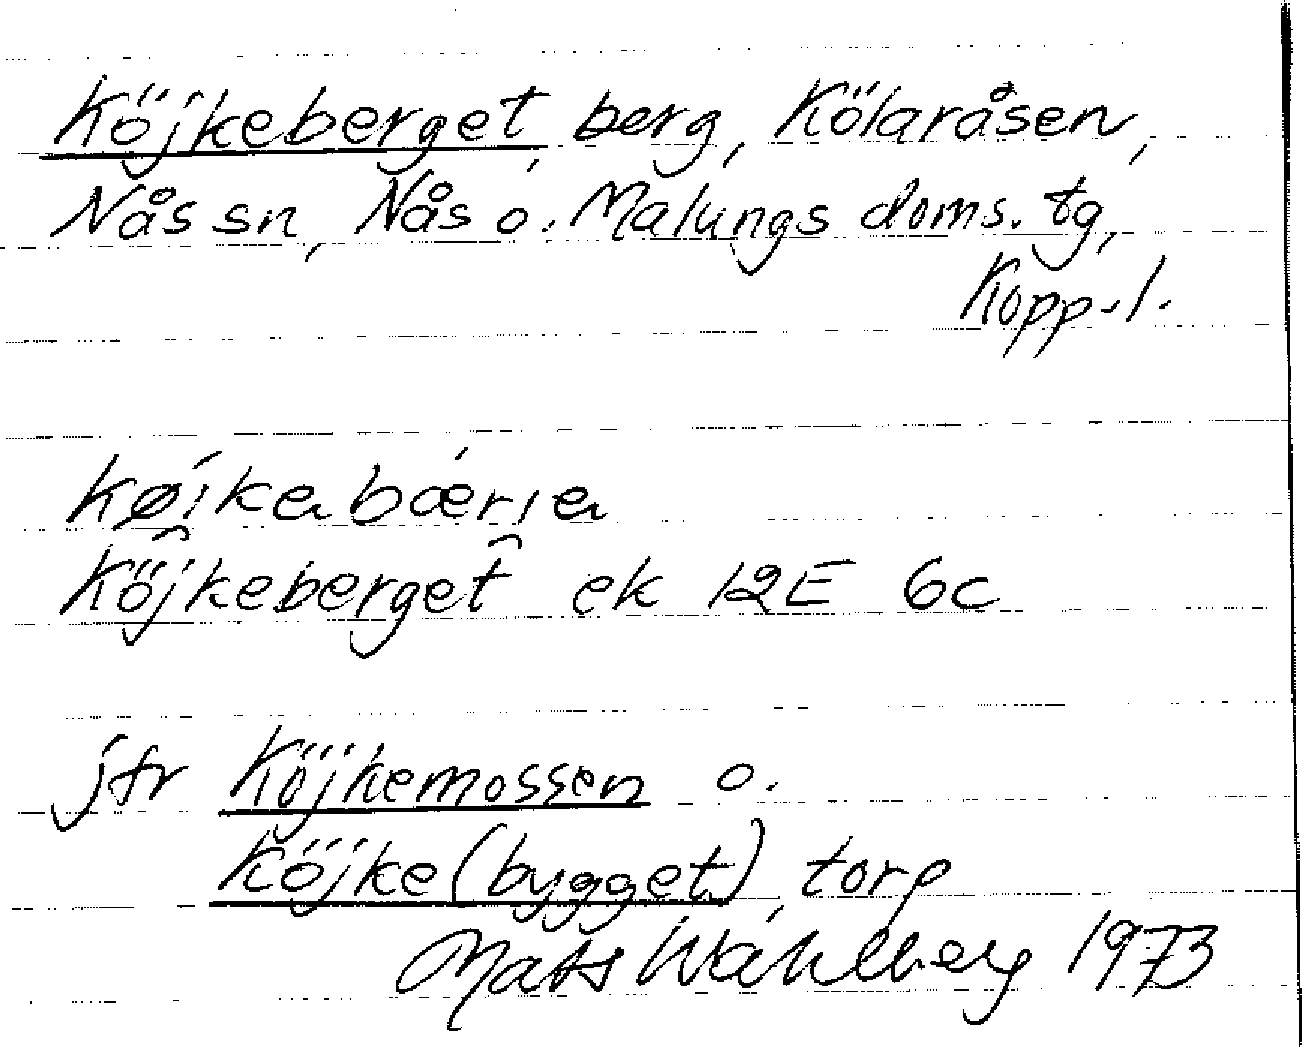 Köjkeberget, berg, Kölaråsen,
Nås sn, Nås o. Malungs doms. tg,
Kopp.l.
Köjkeberget ek 12E 6c
jfr Köjkemossen o.
Köjke(bygget), torp
Mats Wahlberg 1973